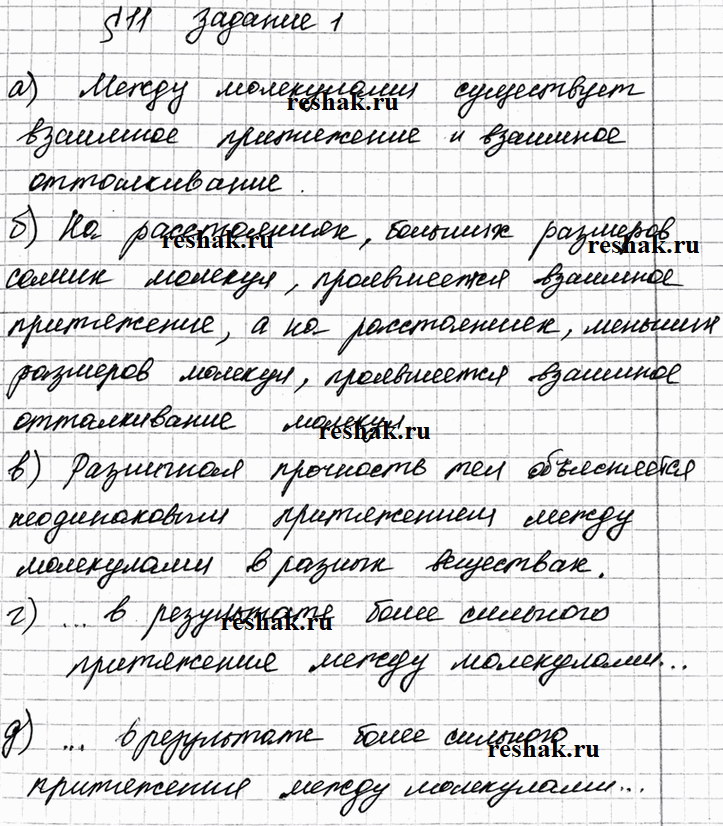 §11 Задание 1
а) Между молекулами существует
reshak.ru
взаимное притяжение и взаимное
отталкивание.
б) На расстояниях, больших размеров
reshak.ru
reshak.ru
самих молекул, проявляется взаимное
притяжение, а на расстояниях, меньших
размеров молекул, проявляется взаимное
отталкивание молекул
reshak.ru
в) Различная прочность тел объясняется
неодинаковым притяжением между
молекулами в разных веществах.
г) ... в результате более сильного
reshak.ru
притяжения между молекулами...
д) ... в результате более сильного
reshak.ru
притяжения между молекулами...